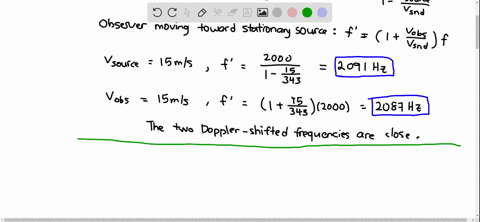 1 - Vsource / Vsnd
Observer moving toward stationary source : f' = (1 + Vobs/Vsnd) f
Vsource = 15 m/s , f' = 2000 / (1 - 15/343) = 2091 Hz
Vobs = 15 m/s , f' = (1 + 15/343)(2000) = 2087 Hz
The two Doppler-shifted frequencies are close.